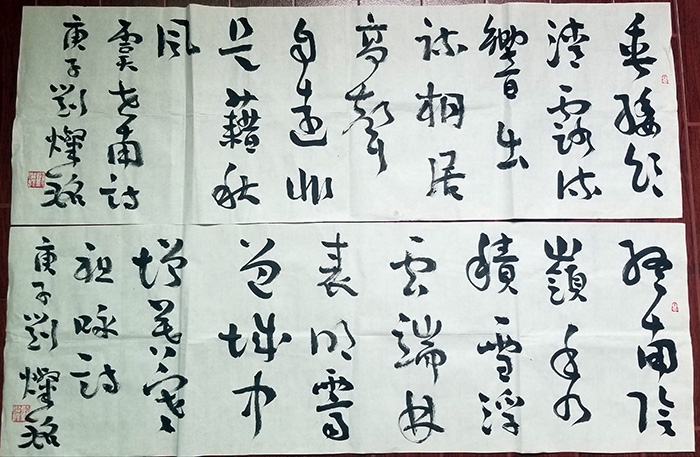 垂緌飲
清露流
響出
疏桐居
高聲
自遠非
是藉秋
風
虞世南詩
庚子劉燦銘
終南陰
嶺秀
積雪浮
雲端林
表明霽
色城中
增暮寒
祖咏詩
庚子劉燦銘